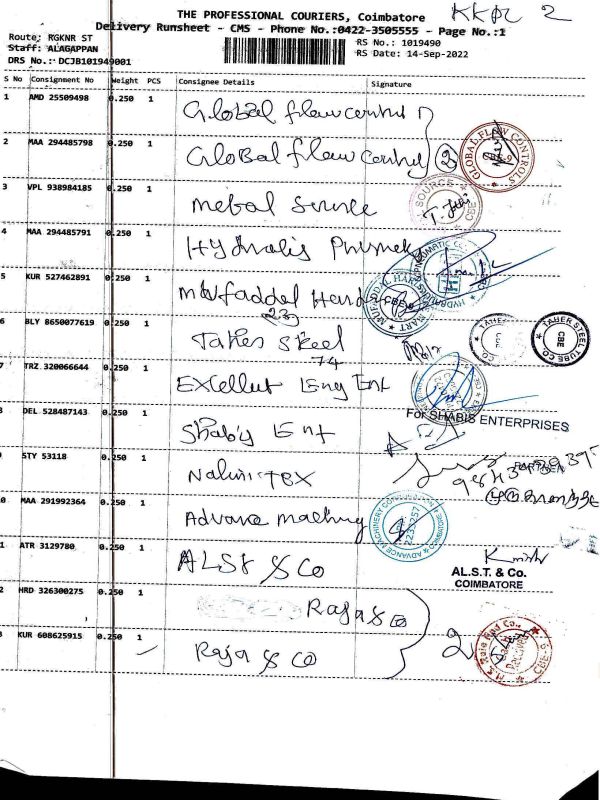 THE PROFESSIONAL COURIERS, Coimbatore
KKPL 2
Delivery Runsheet - CMS - Phone No.:0422-3505555 - Page No.:1
Route: RGKNR ST
RS No.: 1019490
Staff: ALAGAPPAN
RS Date: 14-Sep-2022
DRS No.: DCJB101949001
S No Consignment No Weight PCS Consignee Details Signature
1 AMD 25509498 0.250 1 Global flow control
2 MAA 294485798 0.250 1 Global flow control 2
GLOBAL FLOW CONTROLS CBE-9
3 VPL 938984185 0.250 1 metal source
SOURCE CBE
4 MAA 294485791 0.250 1 Hydralis
HYDRAULICS PNEUMATIC
5 KUR 527462891 0.250 1 Mufaddal Hard
MUFADDAL HARD MART CBE
23
6 BLY 8650077619 0.250 1 Taher Steel
TAHER STEEL TUBE CO CBE
74
7 TRZ 320066644 0.250 1 Excellent Eng Ent
For SHABIS ENTERPRISES
8 DEL 528487143 0.250 1 Shaby Ent
9 STY 53118 0.250 1 Nalini Tex
0 MAA 291992364 0.250 1 Advance machinery
ADVANCE MACHINERY COIMBATORE
1 ATR 3129780 0.250 1 ALST & Co
AL.S.T. & Co.
COIMBATORE
2 HRD 326300275 0.250 1 Raja & Co
3 KUR 608625915 0.250 1 Raja & Co 2
Received